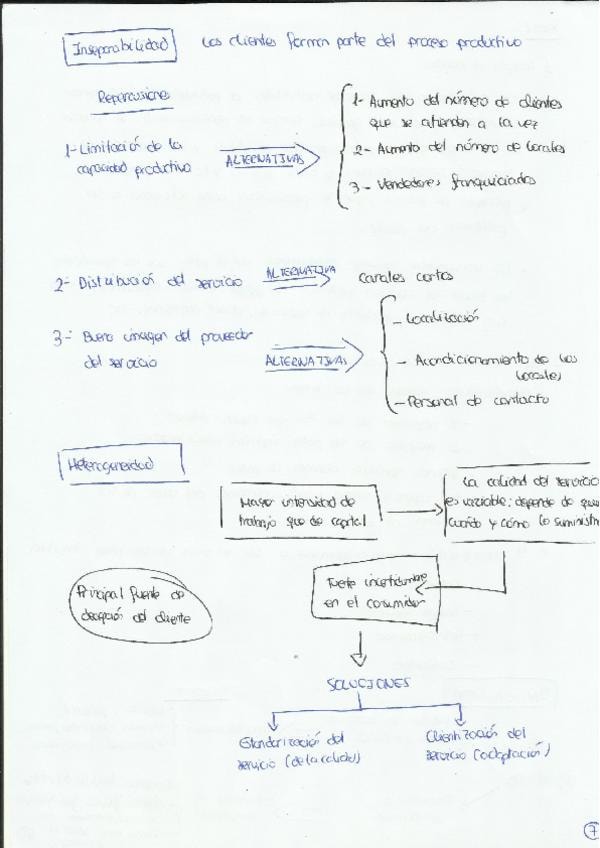 Inseparabilidad
Los clientes forman parte del proceso productivo
Repercusiones
1- Limitación de la
capacidad productiva
ALTERNATIVAS
1- Aumento del número de clientes
que se atienden a la vez
2- Aumento del número de locales
3- Vendedores franquiciados
2- Distribución del servicio
ALTERNATIVA
canales cortos
3- Buena imagen del proveedor
del servicio
ALTERNATIVAS
- Localización
- Acondicionamiento de los
locales
- Personal de contacto
Heterogeneidad
Mayor intensidad de
trabajo que de capital
La calidad del servicio
es variable; depende de quien
cuándo y cómo lo suministr
Fuerte incertidumbre
en el cosumidor
Principal fuente de
decepción del cliente
SOLUCIONES
Estandarización del
servicio (de la calidad)
Clientización del
servicio (adaptación)
7